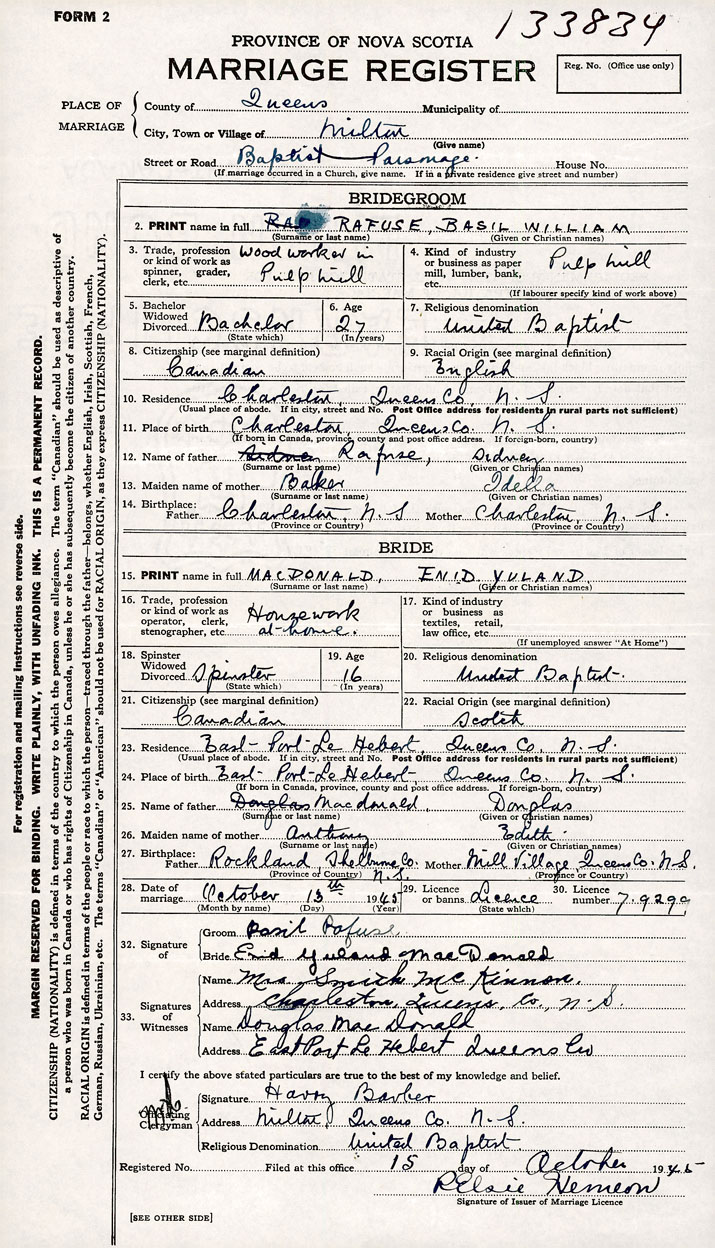 FORM 2
133834
PROVINCE OF NOVA SCOTIA
MARRIAGE REGISTER
Reg. No. (Office use only)
PLACE OF MARRIAGE
County of Queens Municipality of
City, Town or Village of Milton
(Give name)
Street or Road Baptist Parsonage. House No.
(If marriage occurred in a Church, give name. If in a private residence give street and number)
BRIDEGROOM
2. PRINT name in full RAFUSE, BASIL WILLIAM
(Surname or last name) (Given or Christian names)
3. Trade, profession or kind of work as spinner, grader, clerk, etc. Wood worker in Pulp Mill
4. Kind of industry or business as paper mill, lumber, bank, etc. Pulp Mill
(If labourer specify kind of work above)
5. Bachelor Widowed Divorced Bachelor
(State which)
6. Age 27
(In years)
7. Religious denomination United Baptist
8. Citizenship (see marginal definition) Canadian
9. Racial Origin (see marginal definition) English
10. Residence Charleston, Queens Co. N. S.
(Usual place of abode. If in city, street and No. Post Office address for residents in rural parts not sufficient)
11. Place of birth Charleston, Queens Co. N. S.
(If born in Canada, province, county and post office address. If foreign-born, country)
12. Name of father Sidney Rafuse, Sidney
(Surname or last name) (Given or Christian names)
13. Maiden name of mother Baker Idella
(Surname or last name) (Given or Christian names)
14. Birthplace: Father Charleston, N. S Mother Charleston, N. S.
(Province or Country)
BRIDE
15. PRINT name in full MACDONALD, ENID YULAND
(Surname or last name) (Given or Christian names)
16. Trade, profession or kind of work as operator, clerk, stenographer, etc. Housework at-home.
17. Kind of industry or business as textiles, retail, law office, etc.
(If unemployed answer "At Home")
18. Spinster Widowed Divorced Spinster
(State which)
19. Age 16
(In years)
20. Religious denomination United Baptist.
21. Citizenship (see marginal definition) Canadian
22. Racial Origin (see marginal definition) Scotch
23. Residence East-Port-Le Hebert, Queens Co. N. S.
(Usual place of abode. If in city, street and No. Post Office address for residents in rural parts not sufficient)
24. Place of birth East-Port-Le Hebert, Queens Co. N. S.
(If born in Canada, province, county and post office address. If foreign-born, country)
25. Name of father Douglas Macdonald, Douglas
(Surname or last name) (Given or Christian names)
26. Maiden name of mother Anthony Edith
(Surname or last name) (Given or Christian names)
27. Birthplace: Father Rockland, Shelburne Co. N. S. Mother Mill Village, Queens Co. N. S.
(Province or Country) (Province or Country)
28. Date of marriage October 13th 1945
(Month by name) (Day) (Year)
29. Licence or banns Licence
(State which)
30. Licence number 79299
32. Signature of
Groom Basil Rafuse.
Bride Enid Yuland MacDonald
33. Signatures of Witnesses
Name Mrs. Smith Mc Kinnon.
Address Charleston, Queens, Co, N. S.
Name Douglas Mac Donald
Address East Port Le Hebert Queens Co
I certify the above stated particulars are true to the best of my knowledge and belief.
Officiating Clergyman
Signature Harry Barber
Address Milton, Queens Co. N. S.
Religious Denomination United Baptist.
Registered No. Filed at this office 15 day of October 1945
R Elsie Nemeon
Signature of Issuer of Marriage Licence
[SEE OTHER SIDE]
For registration and mailing instructions see reverse side.
MARGIN RESERVED FOR BINDING. WRITE PLAINLY, WITH UNFADING INK. THIS IS A PERMANENT RECORD.
CITIZENSHIP (NATIONALITY) is defined in terms of the country to which the person owes allegiance. The term "Canadian" should be used as descriptive of
a person who was born in Canada or who has rights of Citizenship in Canada, unless he or she has subsequently become the citizen of another country.
RACIAL ORIGIN is defined in terms of the people or race to which the person—traced through the father—belongs, whether English, Irish, Scottish, French,
German, Russian, Ukrainian, etc. The terms "Canadian" or "American" should not be used for RACIAL ORIGIN, as they express CITIZENSHIP (NATIONALITY).